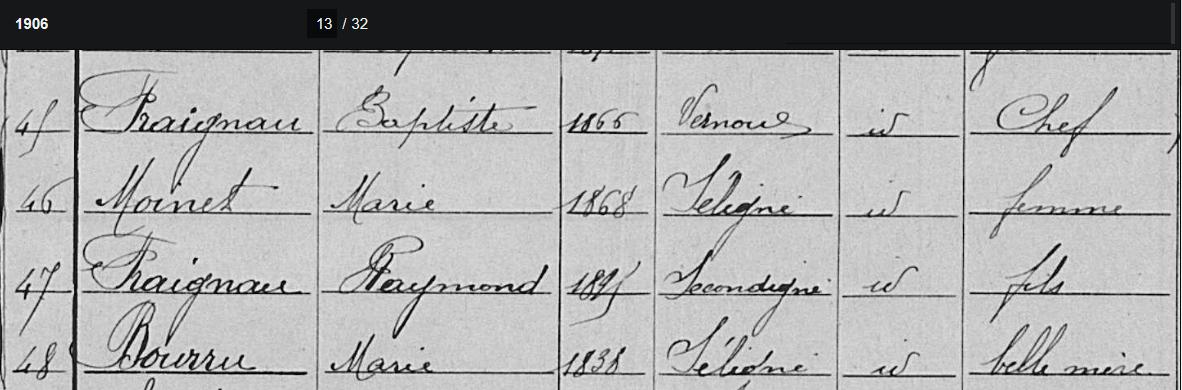 1906 13 / 32
45 Fraignau Baptiste 1866 Vernoux id Chef
46 Moinet Marie 1868 Séligné id femme
47 Fraignau Raymond 1895 Secondigné id fils
48 Bourru Marie 1838 Séligné id belle mère